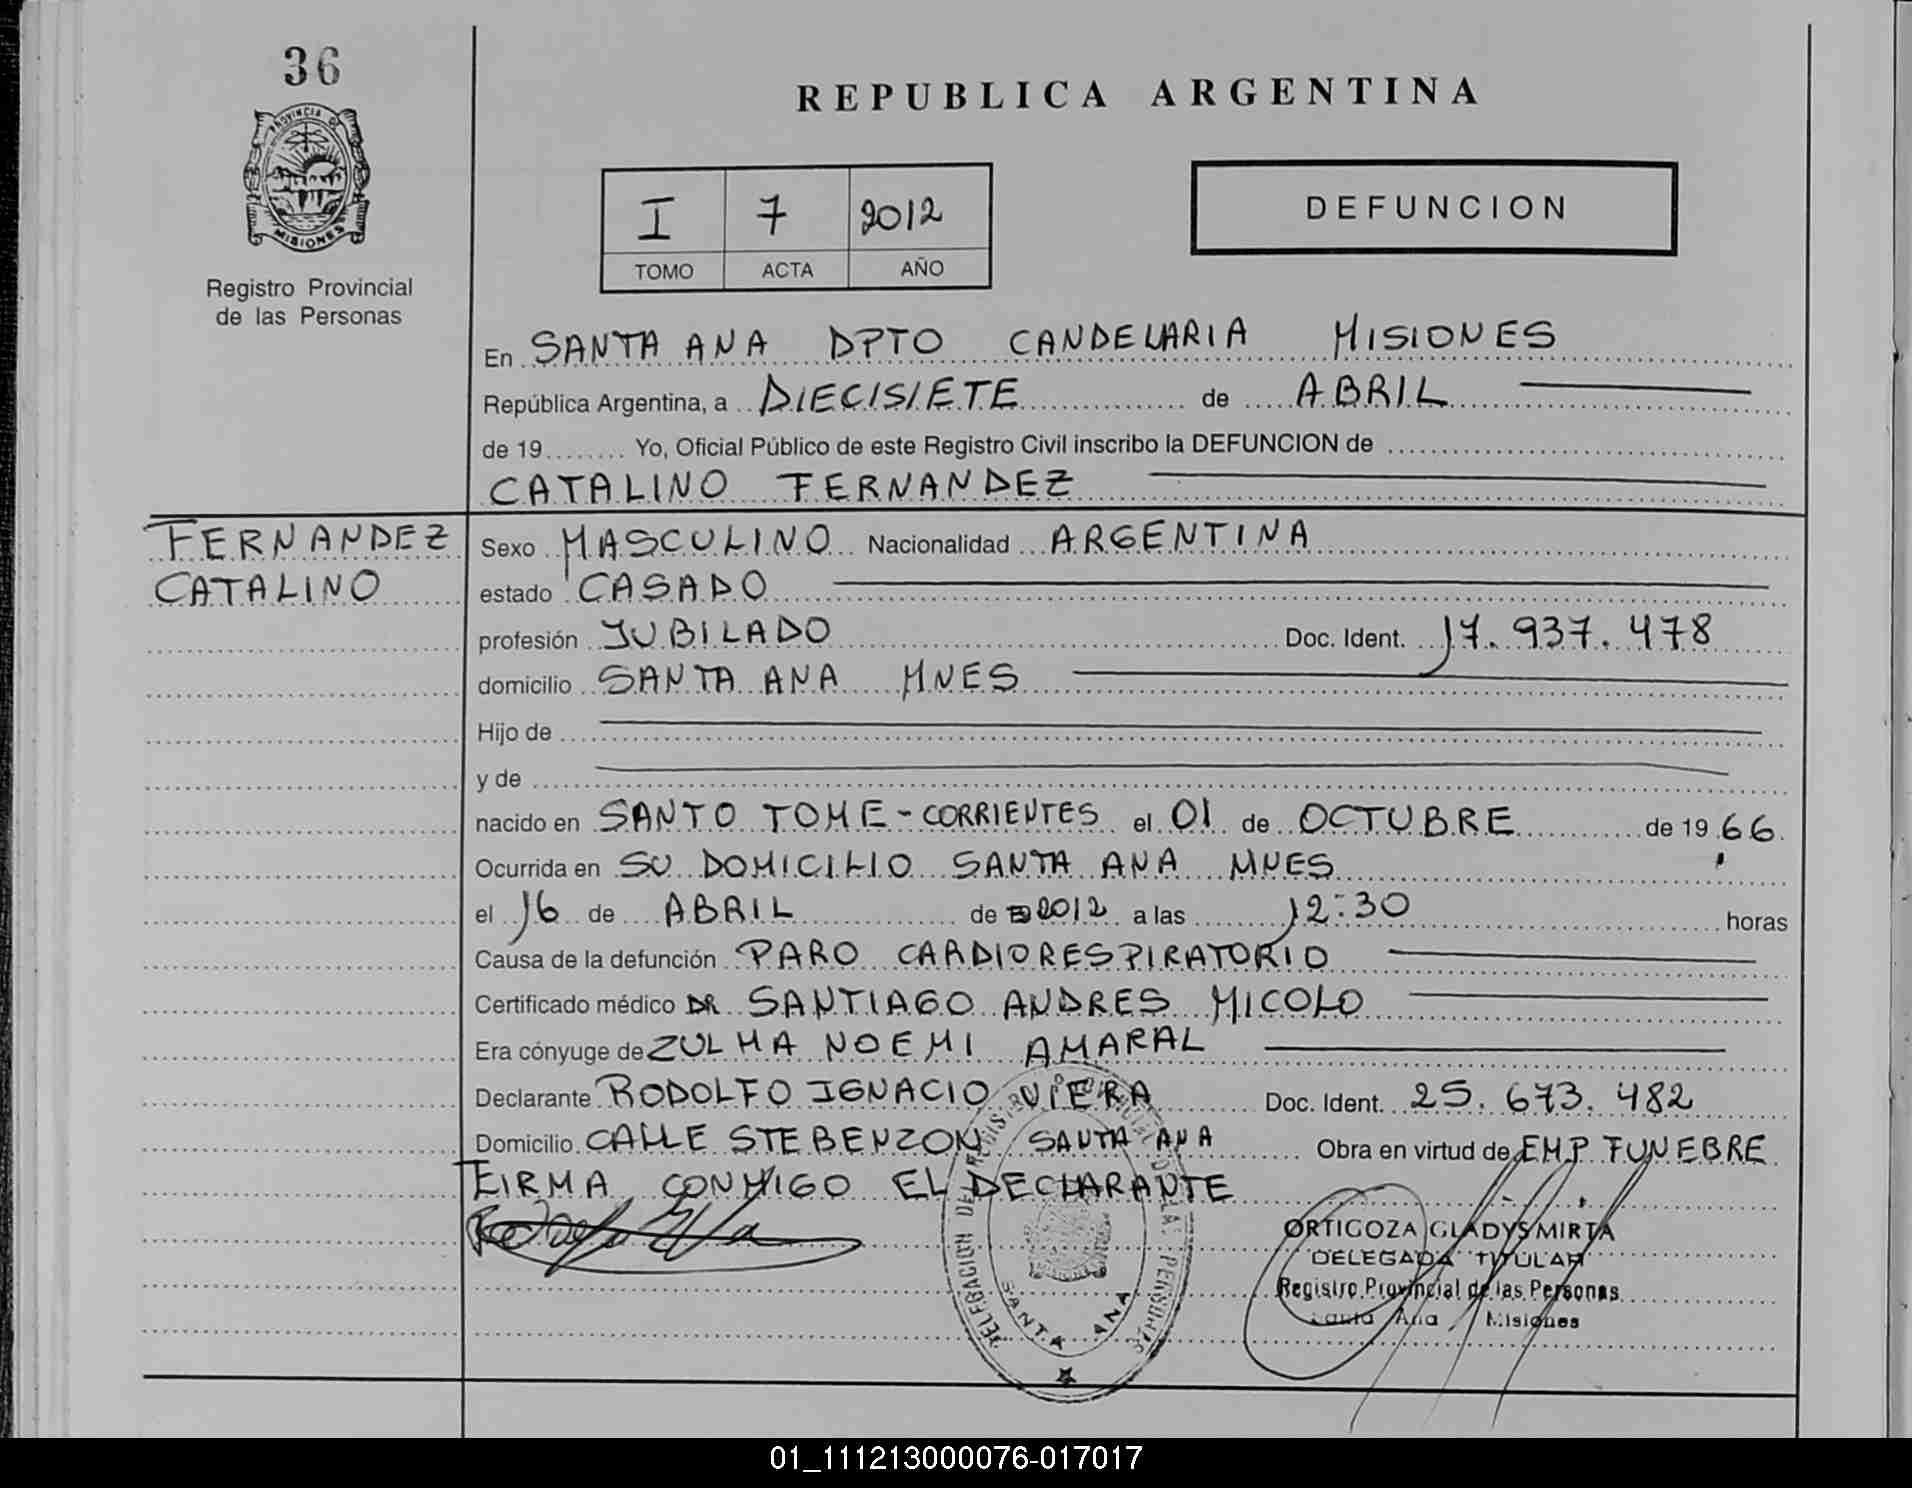 36
PROVINCIA DE
MISIONES
Registro Provincial
de las Personas
REPUBLICA ARGENTINA
I 7 2012
TOMO ACTA AÑO
DEFUNCION
En SANTA ANA DPTO CANDELARIA MISIONES
República Argentina, a DIECISIETE de ABRIL
de 19 Yo, Oficial Público de este Registro Civil inscribo la DEFUNCION de
CATALINO FERNANDEZ
FERNANDEZ
CATALINO
Sexo MASCULINO Nacionalidad ARGENTINA
estado CASADO
profesión JUBILADO Doc. Ident. 17.937.478
domicilio SANTA ANA MNES
Hijo de
y de
nacido en SANTO TOME - CORRIENTES el 01 de OCTUBRE de 19 66
Ocurrida en SU DOMICILIO SANTA ANA MNES
el 16 de ABRIL de 2012 a las 12:30 horas
Causa de la defunción PARO CARDIORESPIRATORIO
Certificado médico DR SANTIAGO ANDRES MICOLO
Era cónyuge de ZULMA NOEMI AMARAL
Declarante RODOLFO IGNACIO VIERA Doc. Ident. 25.673.482
Domicilio CALLE STEBENZON SANTA ANA Obra en virtud de EMP FUNEBRE
FIRMA CONMIGO EL DECLARANTE
ORTIGOZA GLADYS MIRTA
DELEGADA TITULAR
Registro Provincial de las Personas
Santa Ana Misiones
DELEGACION DEL REGISTRO PROVINCIAL DE LAS PERSONAS
SANTA ANA
01_111213000076-017017